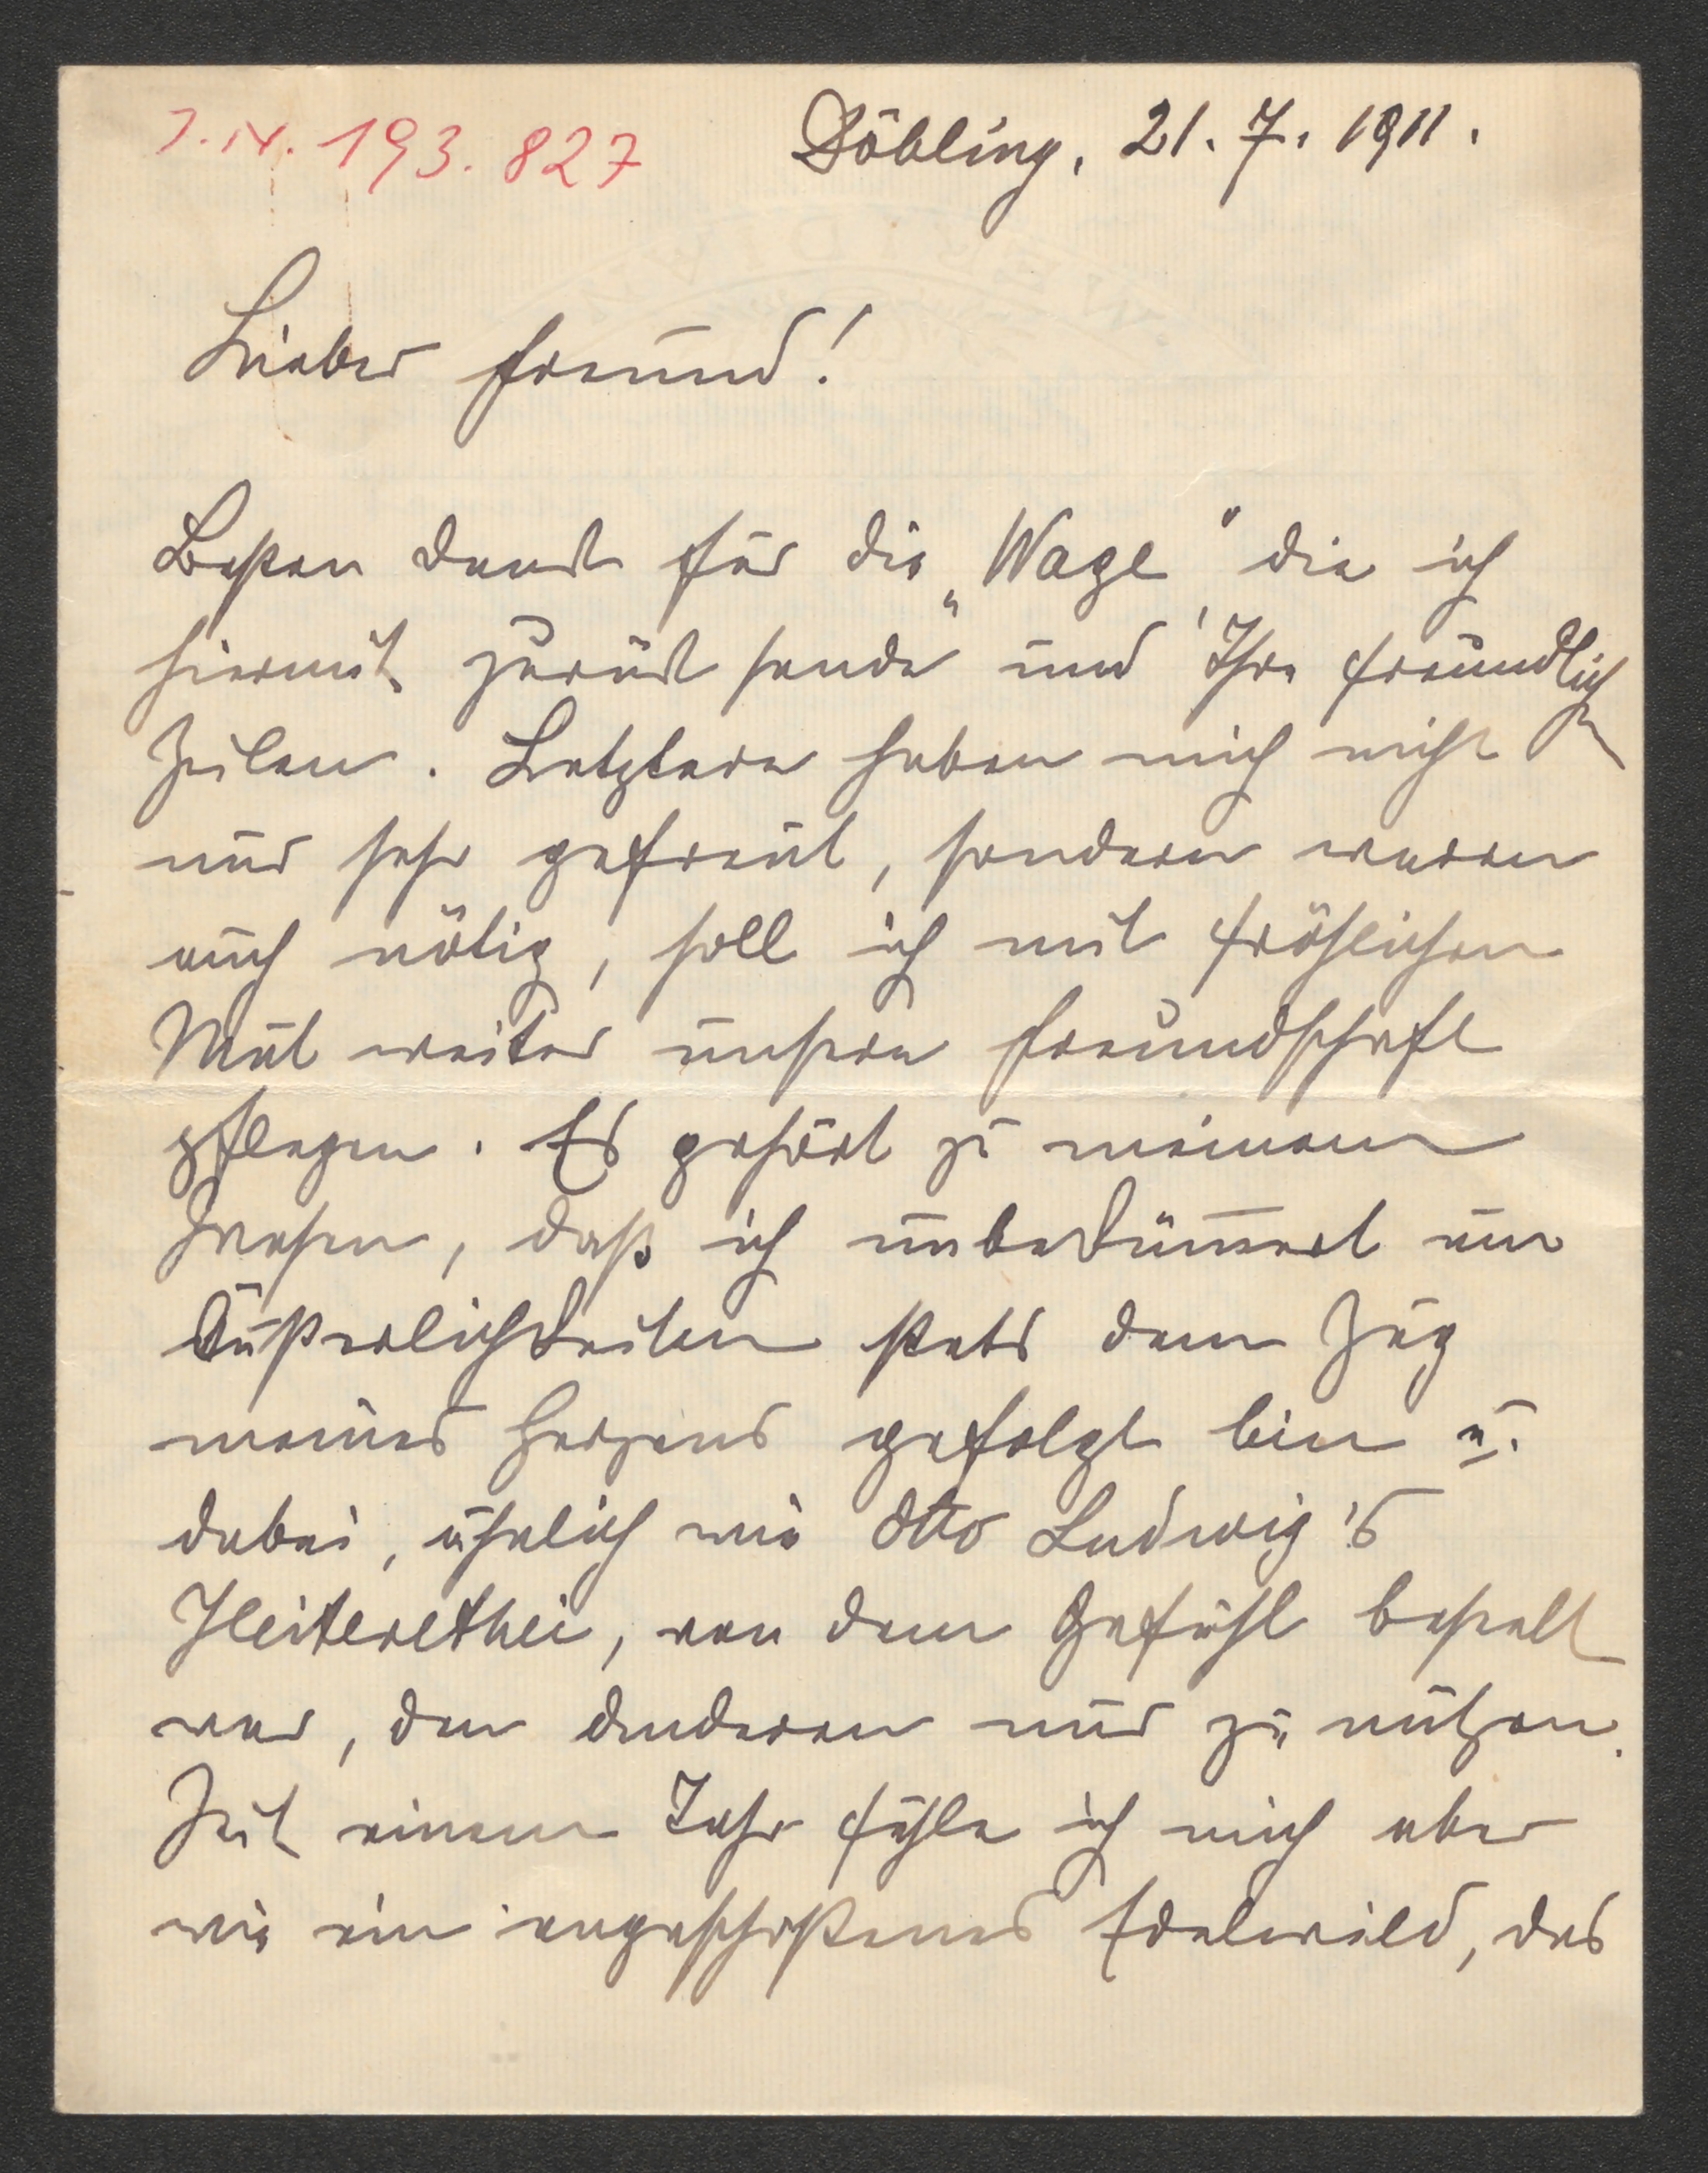 J.N. 193.827
Döbling, 21.7.1911.
Lieber Freund!
Besten Dank für die „Wage“ die ich
hiermit zurück sende und Ihre freundlichen
Zeilen. Letztere haben mich nicht
nur sehr gefreut, sondern waren
auch nötig, soll ich mit fröhlichem
Mut weiter unsere Freundschaft
pflegen. Es gehört zu meinem
Wesen, daß ich unbekümmert um
Äußerlichkeiten stets dem Zug
meines Herzens gefolgt bin u.
dabei, ähnlich wie Otto Ludwig's
Heiterethei, von dem Gefühl beseelt
war, den Anderen nur zu nützen.
Seit einem Jahr fühle ich mich aber
wie ein angeschoßenes Edelwild, das